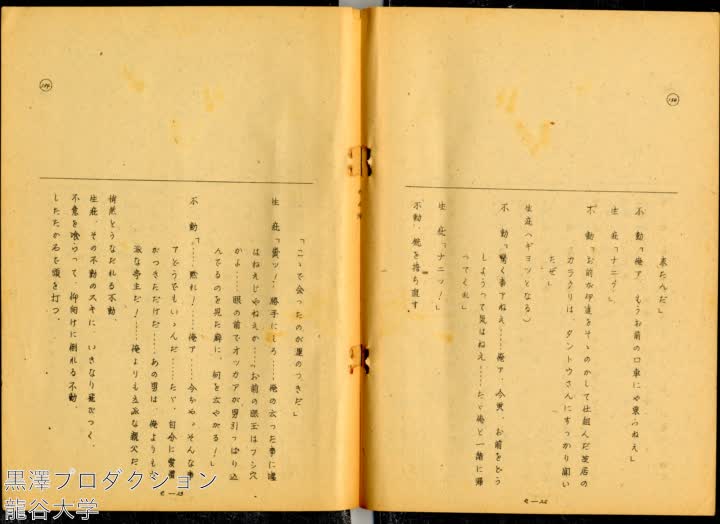 来たんだ」
不動「俺ア、もうお前の口車にや乗らねえ」
生庄「ナニヲ」
不動「お前が伊達をそゝのかして仕組んだ芝居の
カラクリは、ダントウさんにすっかり聞い
たぜ」
生庄(ギョッとなる)
不動「驚く事アねえ……俺ア、今更、お前をどう
しようって気はねえ……たゞ俺と一緒に帰
ってくれ」
生庄「ナニッ!」
不動、銃を持ち直す
「こゝで会ったのが運のつきだ」
生庄「黄ッ!勝手にしろ……俺の云った事に嘘
はねえじゃねえか……お前の眼玉はフシ穴
かよ……眼の前でオッカアが男引っぱり込
んでるのを見た癖に、何を云やがる!」
不動「……黙れ!……俺ア……今ぢゃ、そんな事
アどうでもいゝんだ……たゞ、自分に愛想
がつきただけだ……あの男は、俺よりも
派な亭主だ!……俺よりも立派な親父だ
悄然とうなだれる不動。
生庄、その不動のスキに、いきなり飛びつく。
不意を喰らって、仰向けに倒れる不動、
したゝか石で頭を打つ。
黒澤プロダクション
龍谷大学